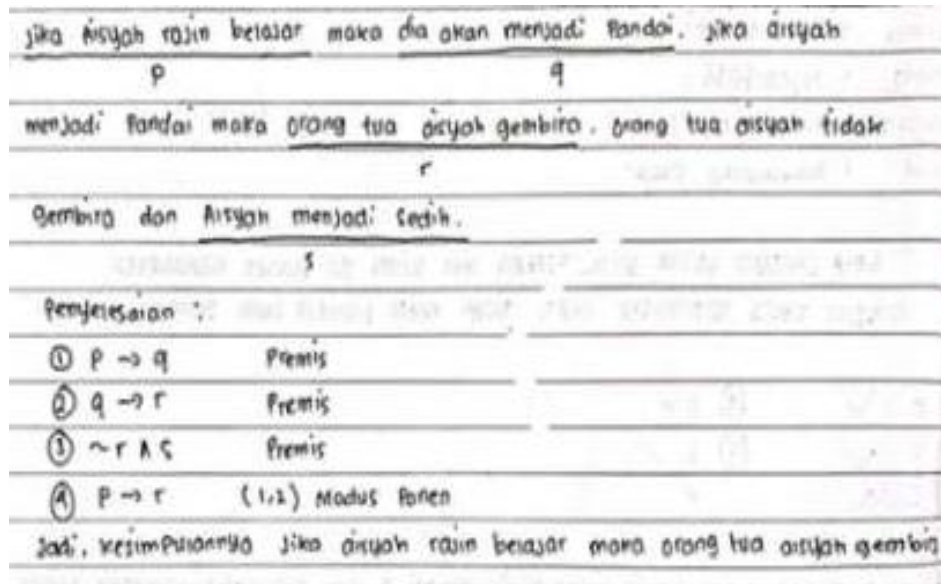 jika Aisyah rajin belajar maka dia akan menjadi Pandai. jika aisyah
p q
menjadi Pandai maka orang tua aisyah gembira. orang tua aisyah tidak
r
gembira dan Aisyah menjadi sedih.
s
Penyelesaian :
① P → q Premis
② q → r Premis
③ ~r ∧ s Premis
④ P → r (1,2) Modus Ponen
Jadi, kesimpulannya jika aisyah rajin belajar maka orang tua aisyah gembir